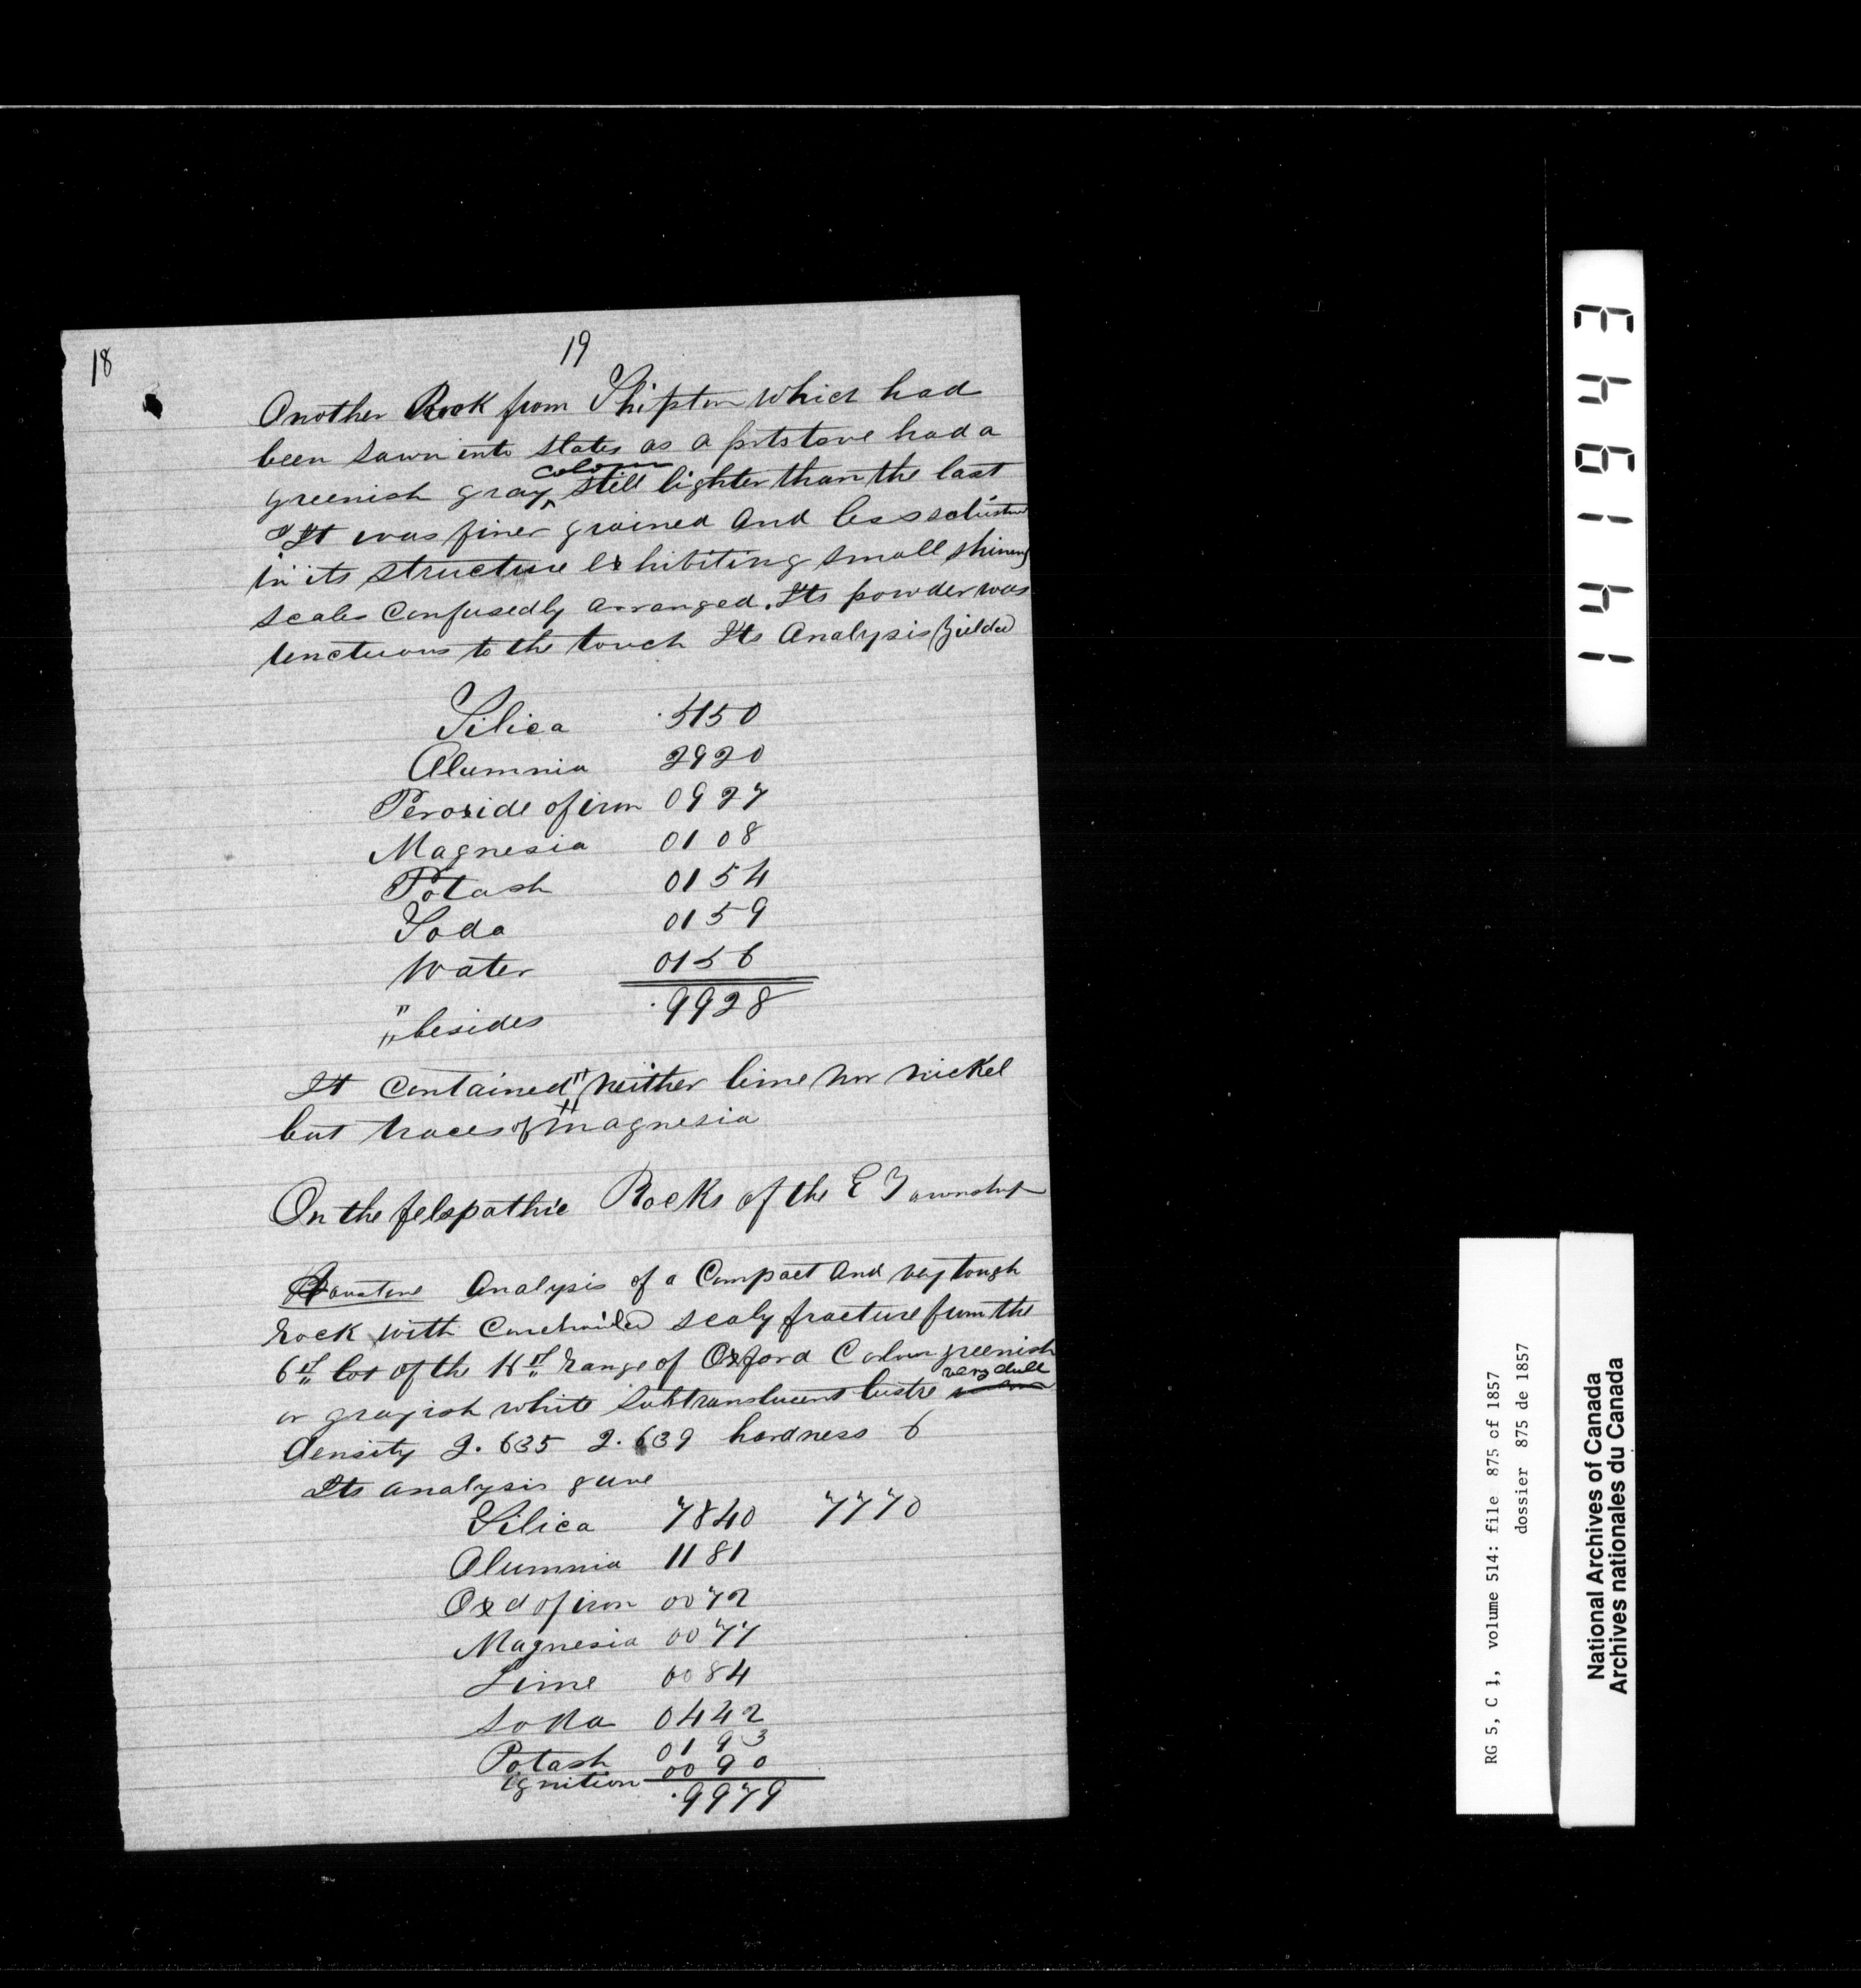 18
19
Another Rock from Shipton which had
been sawn into slates as a potstone had a
greenish gray colour still lighter than the last
It was finer grained and less schistose
in its structure exhibiting small shining
scales confusedly arranged. Its powder was
unctuous to the touch Its Analysis yielded
Silica .5150
Alumnia 2920
Peroxide of iron 0927
Magnesia 0108
Potash 0154
Soda 0159
Water 0156
.9928
" besides
It contained " neither lime nor nickel
but traces of magnesia
On the felspathic Rocks of the E Township
Analysis of a Compact and very tough
rock with Conchoidal scaly fracture from the
6th lot of the range of Oxford Colour greenish
or grayish white Subtranslucent lustre very dull
density 2.635 2.639 hardness 6
Its analysis gave
Silica 7840 7770
Alumnia 1181
Oxd of iron 0072
Magnesia 0077
Lime 0084
Soda 0442
Potash 0193
ignition 0090
.9979
141943
RG 5, C 1, volume 514: file 875 of 1857
dossier 875 de 1857
National Archives of Canada
Archives nationales du Canada